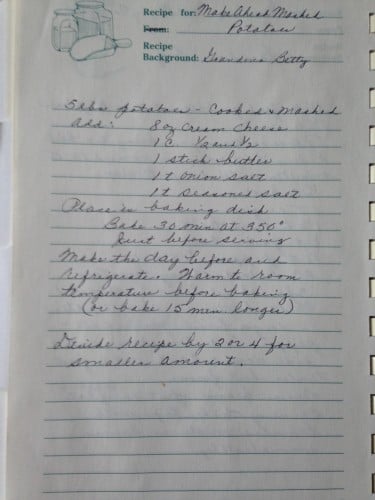 Recipe for: Make Ahead Mashed
From: Potatoes
Recipe
Background: Grandma Betty
5 lbs potatoes - Cooked & Mashed
Add: 8 oz Cream Cheese
1 C ½ and ½
1 stick butter
1 t onion salt
1 t seasoned salt
Place in baking dish
Bake 30 min at 350°
Just before serving
Make the day before and
refrigerate. Warm to room
temperature before baking
(or bake 15 min longer)
Divide recipe by 2 or 4 for
smaller amount.